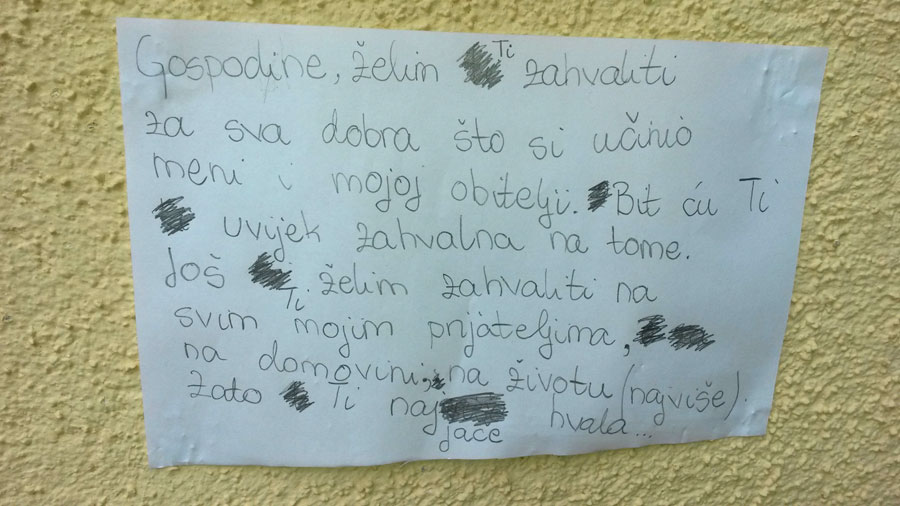 Gospodine, želim Ti zahvaliti
za sva dobra što si učinio
meni i mojoj obitelji. Bit ću Ti
uvijek zahvalna na tome.
Još Ti želim zahvaliti na
svim mojim prijateljima,
na domovini, na životu (najviše).
Zato Ti najjače hvala...